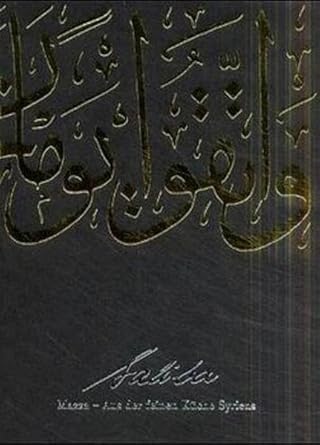 واتقوا يوما
Saliba
Mazza – Aus der feinen Küche Syriens